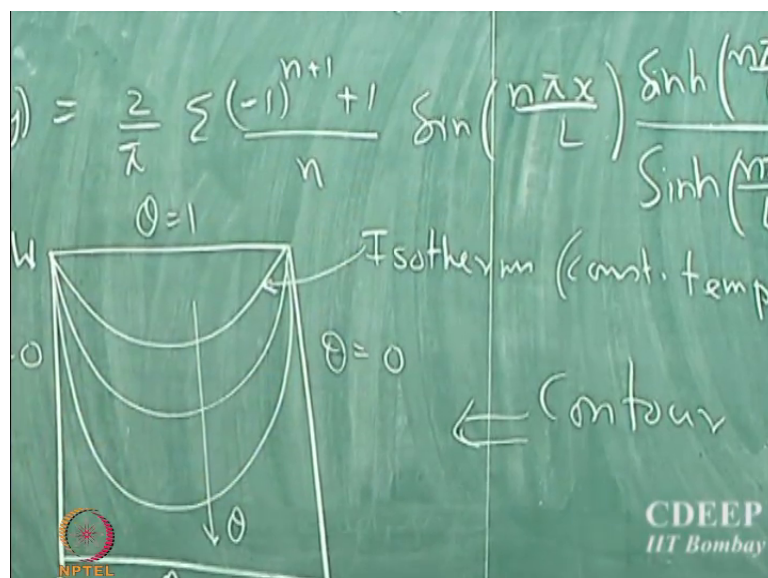 ) = 2/π Σ (-1)^(n+1) + 1 / n Sin (nπx / L) Sinh (nπ / Sinh (nπ / L
θ = 1
W
Isotherm (const. temp
0
θ = 0
Contour
θ
CDEEP
IIT Bombay
NPTEL